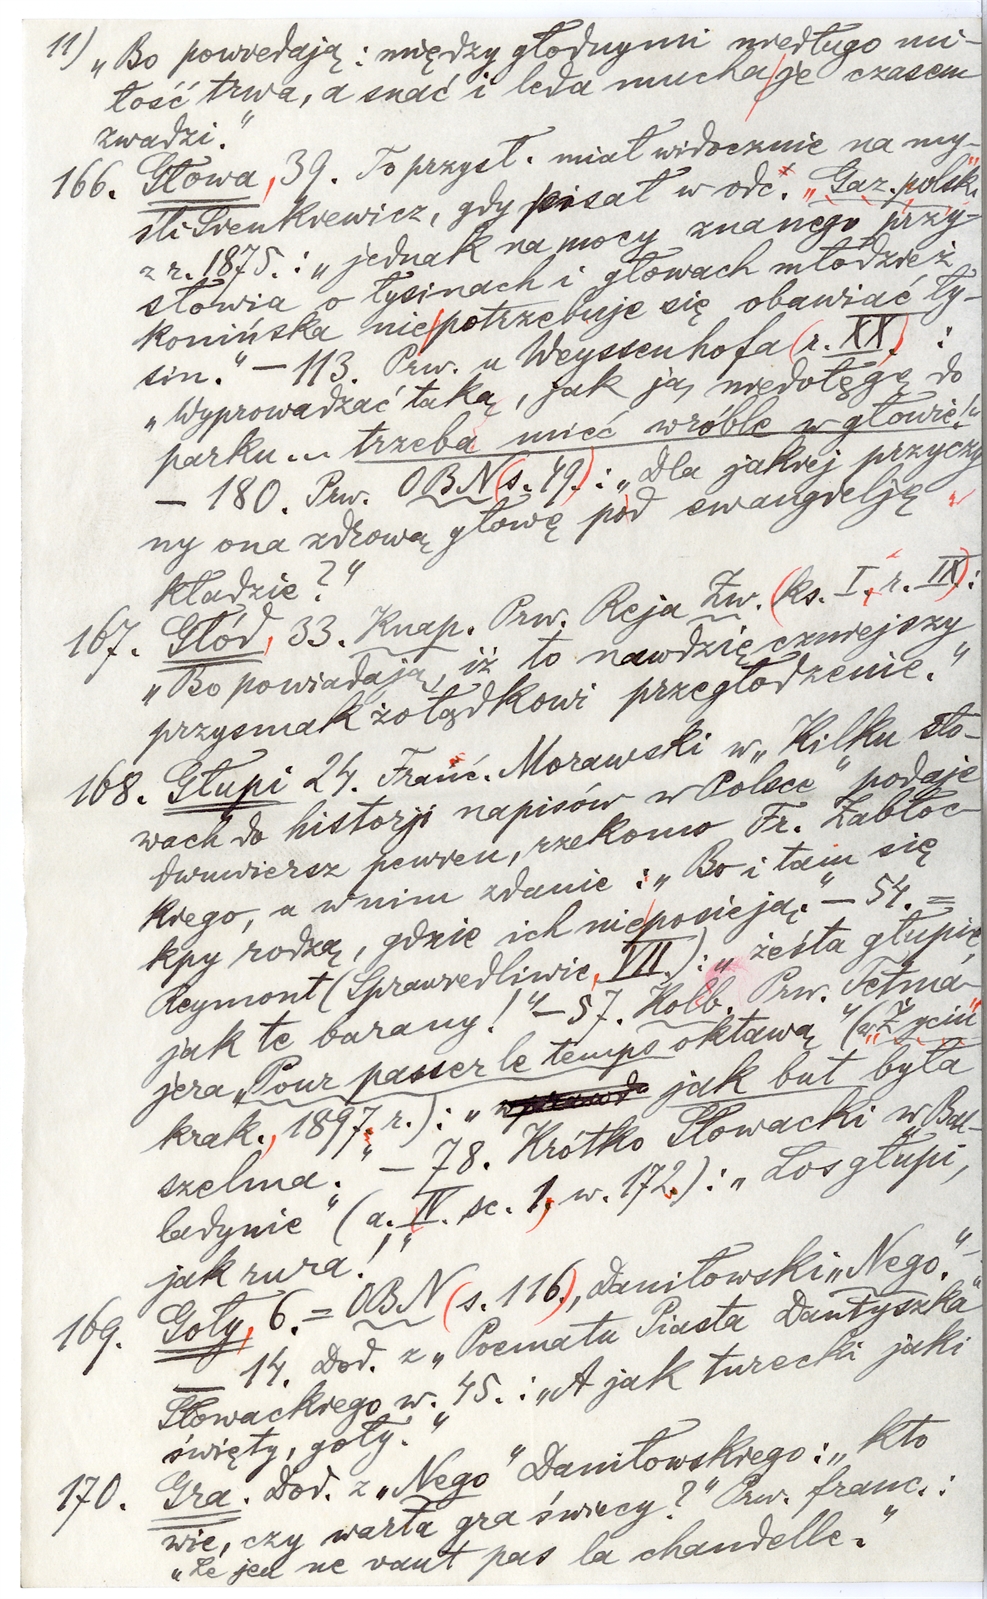 11) „Bo powiedają: między głodnymi niedługo mi-
łość trwa, a snać i leda mucha je czasem
zwadzi."
166. Głowa, 39. To przysł. miał widocznie na my-
śli Sienkiewicz, gdy pisał w odc. „Gaz. polsk."
z r. 1875.: „jednak na mocy znanego przy-
słowia o łysinach i głowach młodzież
konińska nie potrzebuje się obawiać ły-
sin." – 113. Prw. u Weyssenhofa (r. XX.) :
„Wyprowadzać taką, jak ja, niedołęgę do
parku... trzeba mieć wróble w głowie!"
– 180. Prw. OBN (s. 49.): „Dla jakiej przyczy-
ny ona zdrową głowę pod ewangielję
kładzie?"
167. Głód, 33. Knap. Prw. Reja Zw. (ks. I, r. IX):
„Bo powiadają, iż to nawdzięczniejszy
przysmak żołądkowi przegłodzenie."
168. Głupi 24. Franc. Morawski w „Kilku sło-
wach do historji napisów w Polsce" podaje
dwuwiersz pewien, rzekomo Fr. Zabłoc-
kiego, a w nim zdanie: „Bo i tam się
kpy rodzą, gdzie ich nie posieją." – 54. =
Reymont (Sprawiedliwie, VII.): „żeśta głupie,
jak te barany!" – 57. Kolb. Prw. Tetma-
jera „Pour passer le temps oktawą" (w „Życiu"
krak., 1897. r.): „jak but była
szelma." – 78. Krótko Słowacki w „Bal-
ladynie" (a. IV. sc. 1, w. 172.): „Los głupi,
jak rura!"
169. Goły, 6. = OBN (s. 116.), Daniłowski „Nego." –
– 14. Dod. z „Poematu Piasta Dantyszka"
Słowackiego w. 45.: „A jak turecki jaki
święty, goły."
170. Gra. Dod. z „Nego" Daniłowskiego: „kto
wie, czy warta gra świecy?" Prw. franc.:
„Le jeu ne vaut pas la chandelle."